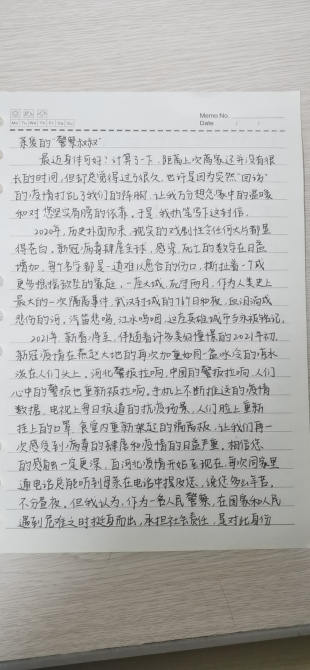 Memo No.
Mo Tu We Th Fr Sa Su
Date / /
亲爱的“警察叔叔”
最近身体可好?计算了一下,距离上次离家还并没有很
长的时间,但却总觉得过了很久,也许是因为突然“回访”
的疫情打乱了我们的阵脚,让我万分想念家中的温暖
和对您坚实肩膀的依靠。于是,我执笔写下这封信。
2020年,历史扑面而来,现实的戏剧性令任何大片都显
得苍白。新冠病毒肆虐全球,感染、死亡的数字在日益
增加,每个名字都是一道难以愈合的伤口,撕扯着一个或
更多惶惶欲坠的家庭,一座大城,死守两月,作为人类史上
最大的一次隔离事件,武汉封城的76个日和夜,血泪淌成
悲伤的河。汽笛悲鸣,江水呜咽,这座英雄城市当永被铭记。
2021年,新春将至,伴随着许多美好憧憬的2021年初,
新冠疫情在燕赵大地的再次加重如同一盆冰冷的凉水
泼在人们头上,河北警报拉响,中国的警报拉响,人们
心中的警报也重新被拉响。手机上不断推送的疫情
数据,电视上每日报道的抗疫场景,人们脸上重新
挂上的口罩,食堂内重新架起的隔离板,让我们再一
次感受到病毒的肆虐和疫情的日益严重。相信您
的感触会一定更深,自河北疫情开始至现在,每次同家里
通电话总能听到母亲在电话中提及您,说您多么辛苦,
不分昼夜。但我认为,作为一名人民警察,在国家和人民
遇到危难之时挺身而出,承担社会责任,是对此身份